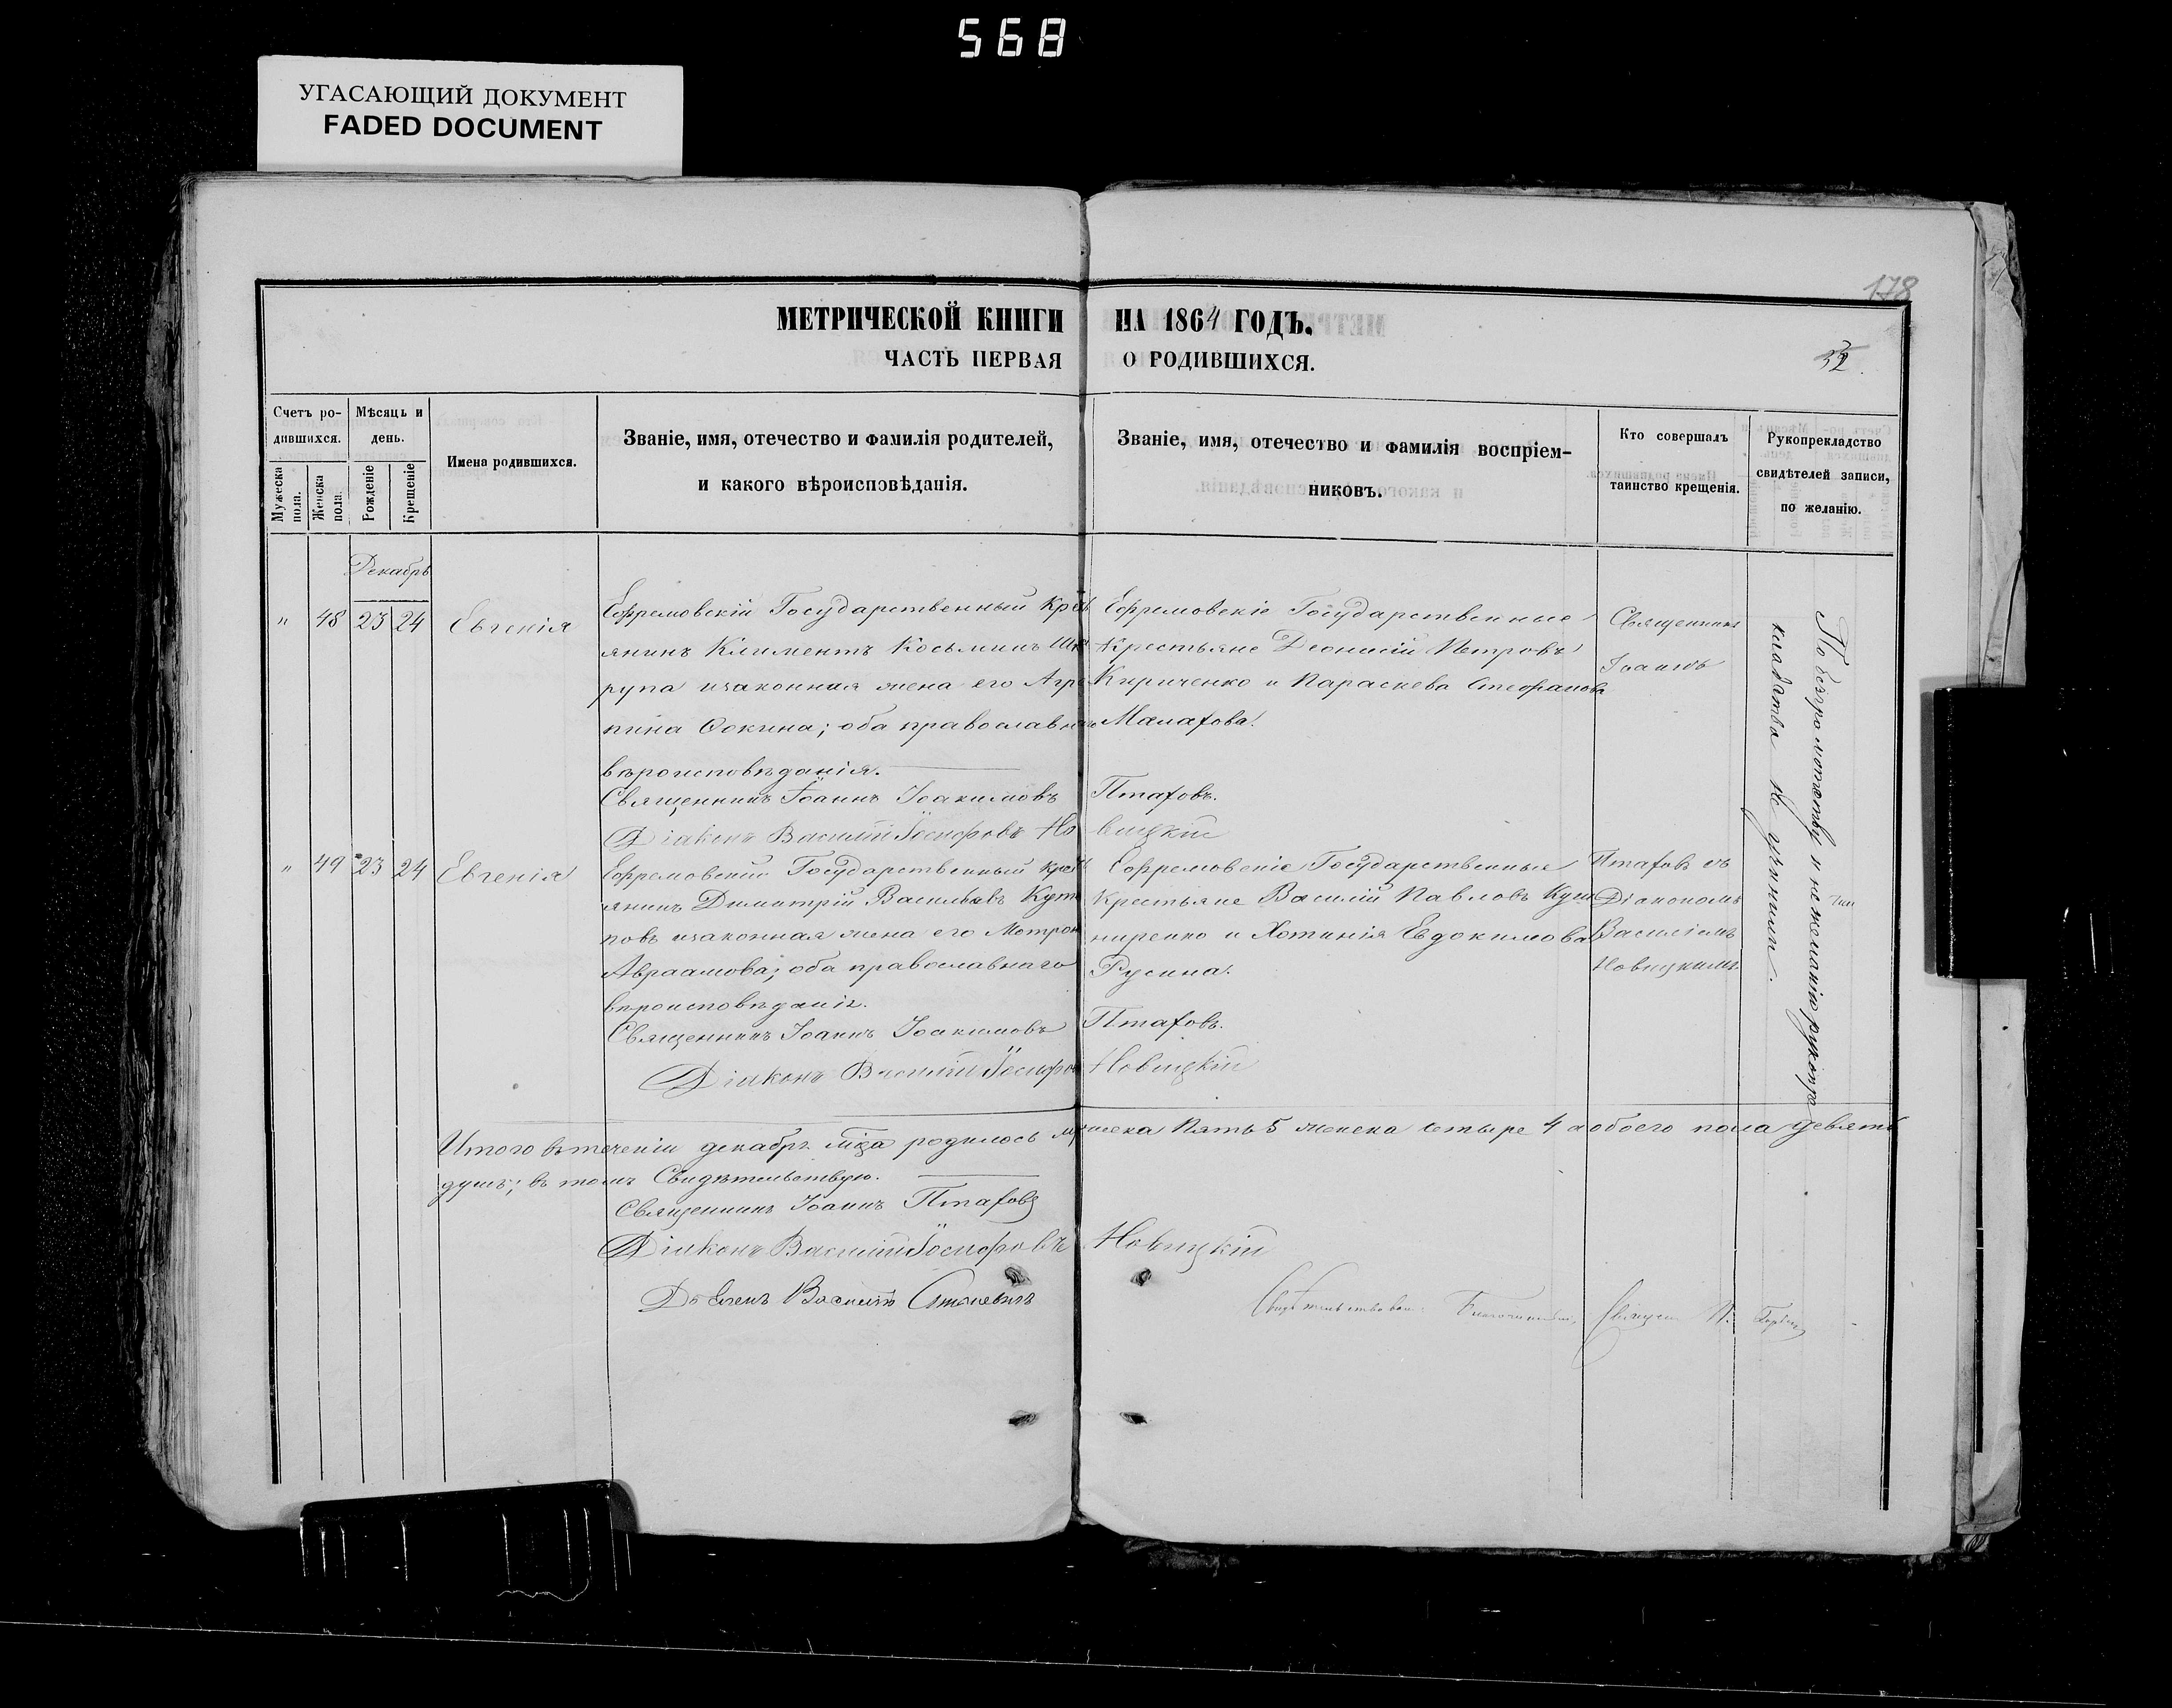 568
УГАСАЮЩИЙ ДОКУМЕНТ
FADED DOCUMENT
178
МЕТРИЧЕСКОЙ КНИГИ НА 1864 ГОДЪ.
ЧАСТЬ ПЕРВАЯ О РОДИВШИХСЯ.
32
Счетъ ро-
дившихся.
Мужеска пола.
Женска пола.
Мѣсяцъ и
день.
Рожденіе
Крещеніе
Имена родившихся.
Званіе, имя, отечество и фамилія родителей,
и какого вѣроисповѣданія.
Званіе, имя, отечество и фамилія воспріем-
никовъ.
Кто совершалъ
таинство крещенія.
Рукоприкладство
свидѣтелей записи,
по желанію.
Декабрь
" 48 23 24 Евгенія
Ефремовскій Государственный Крест
янинъ Климентъ Косьминъ
рупа изаконная жена его Агре
пина Фокина; оба православнаго
вѣроисповѣданія.
Священникъ Іоаннъ Іоакимовъ Птаховъ.
Діаконъ Василій Іосифовъ Новицкій
Ефремовскіе Государственные
Крестьяне Деонисій Петровъ
Кириченко и Параскева Стефанова
Малахова.
Священникъ
Іоаннъ
" 49 23 24 Евгенія
Ефремовскій Государственный Крест
янинъ Димитрій Васильевъ
повъ изаконная жена его Матрона
Авраамова; оба православнаго
вѣроисповѣданія.
Священникъ Іоаннъ Іоакимовъ Птаховъ.
Діаконъ Василій Іосифовъ Новицкій
Ефремовскіе Государственные
Крестьяне Василій Павловъ Куш
ниренко и Хотинія Евдокимова
Русина.
Птаховъ съ
Діакономъ
Василіемъ
Новицкимъ.
По безграмотству и нежеланію рукопри
кладства не учинили.
Итого втеченіи декабрѣ мца родилось мужеска Пять 5 женска четыре 4 а обоего пола девять
душъ; въ томъ Свидѣтельствую.
Священникъ Іоаннъ Птаховъ
Діаконъ Василій Іосифовъ Новицкій
Василій
Свидѣтельствовалъ Благочинный, Священ